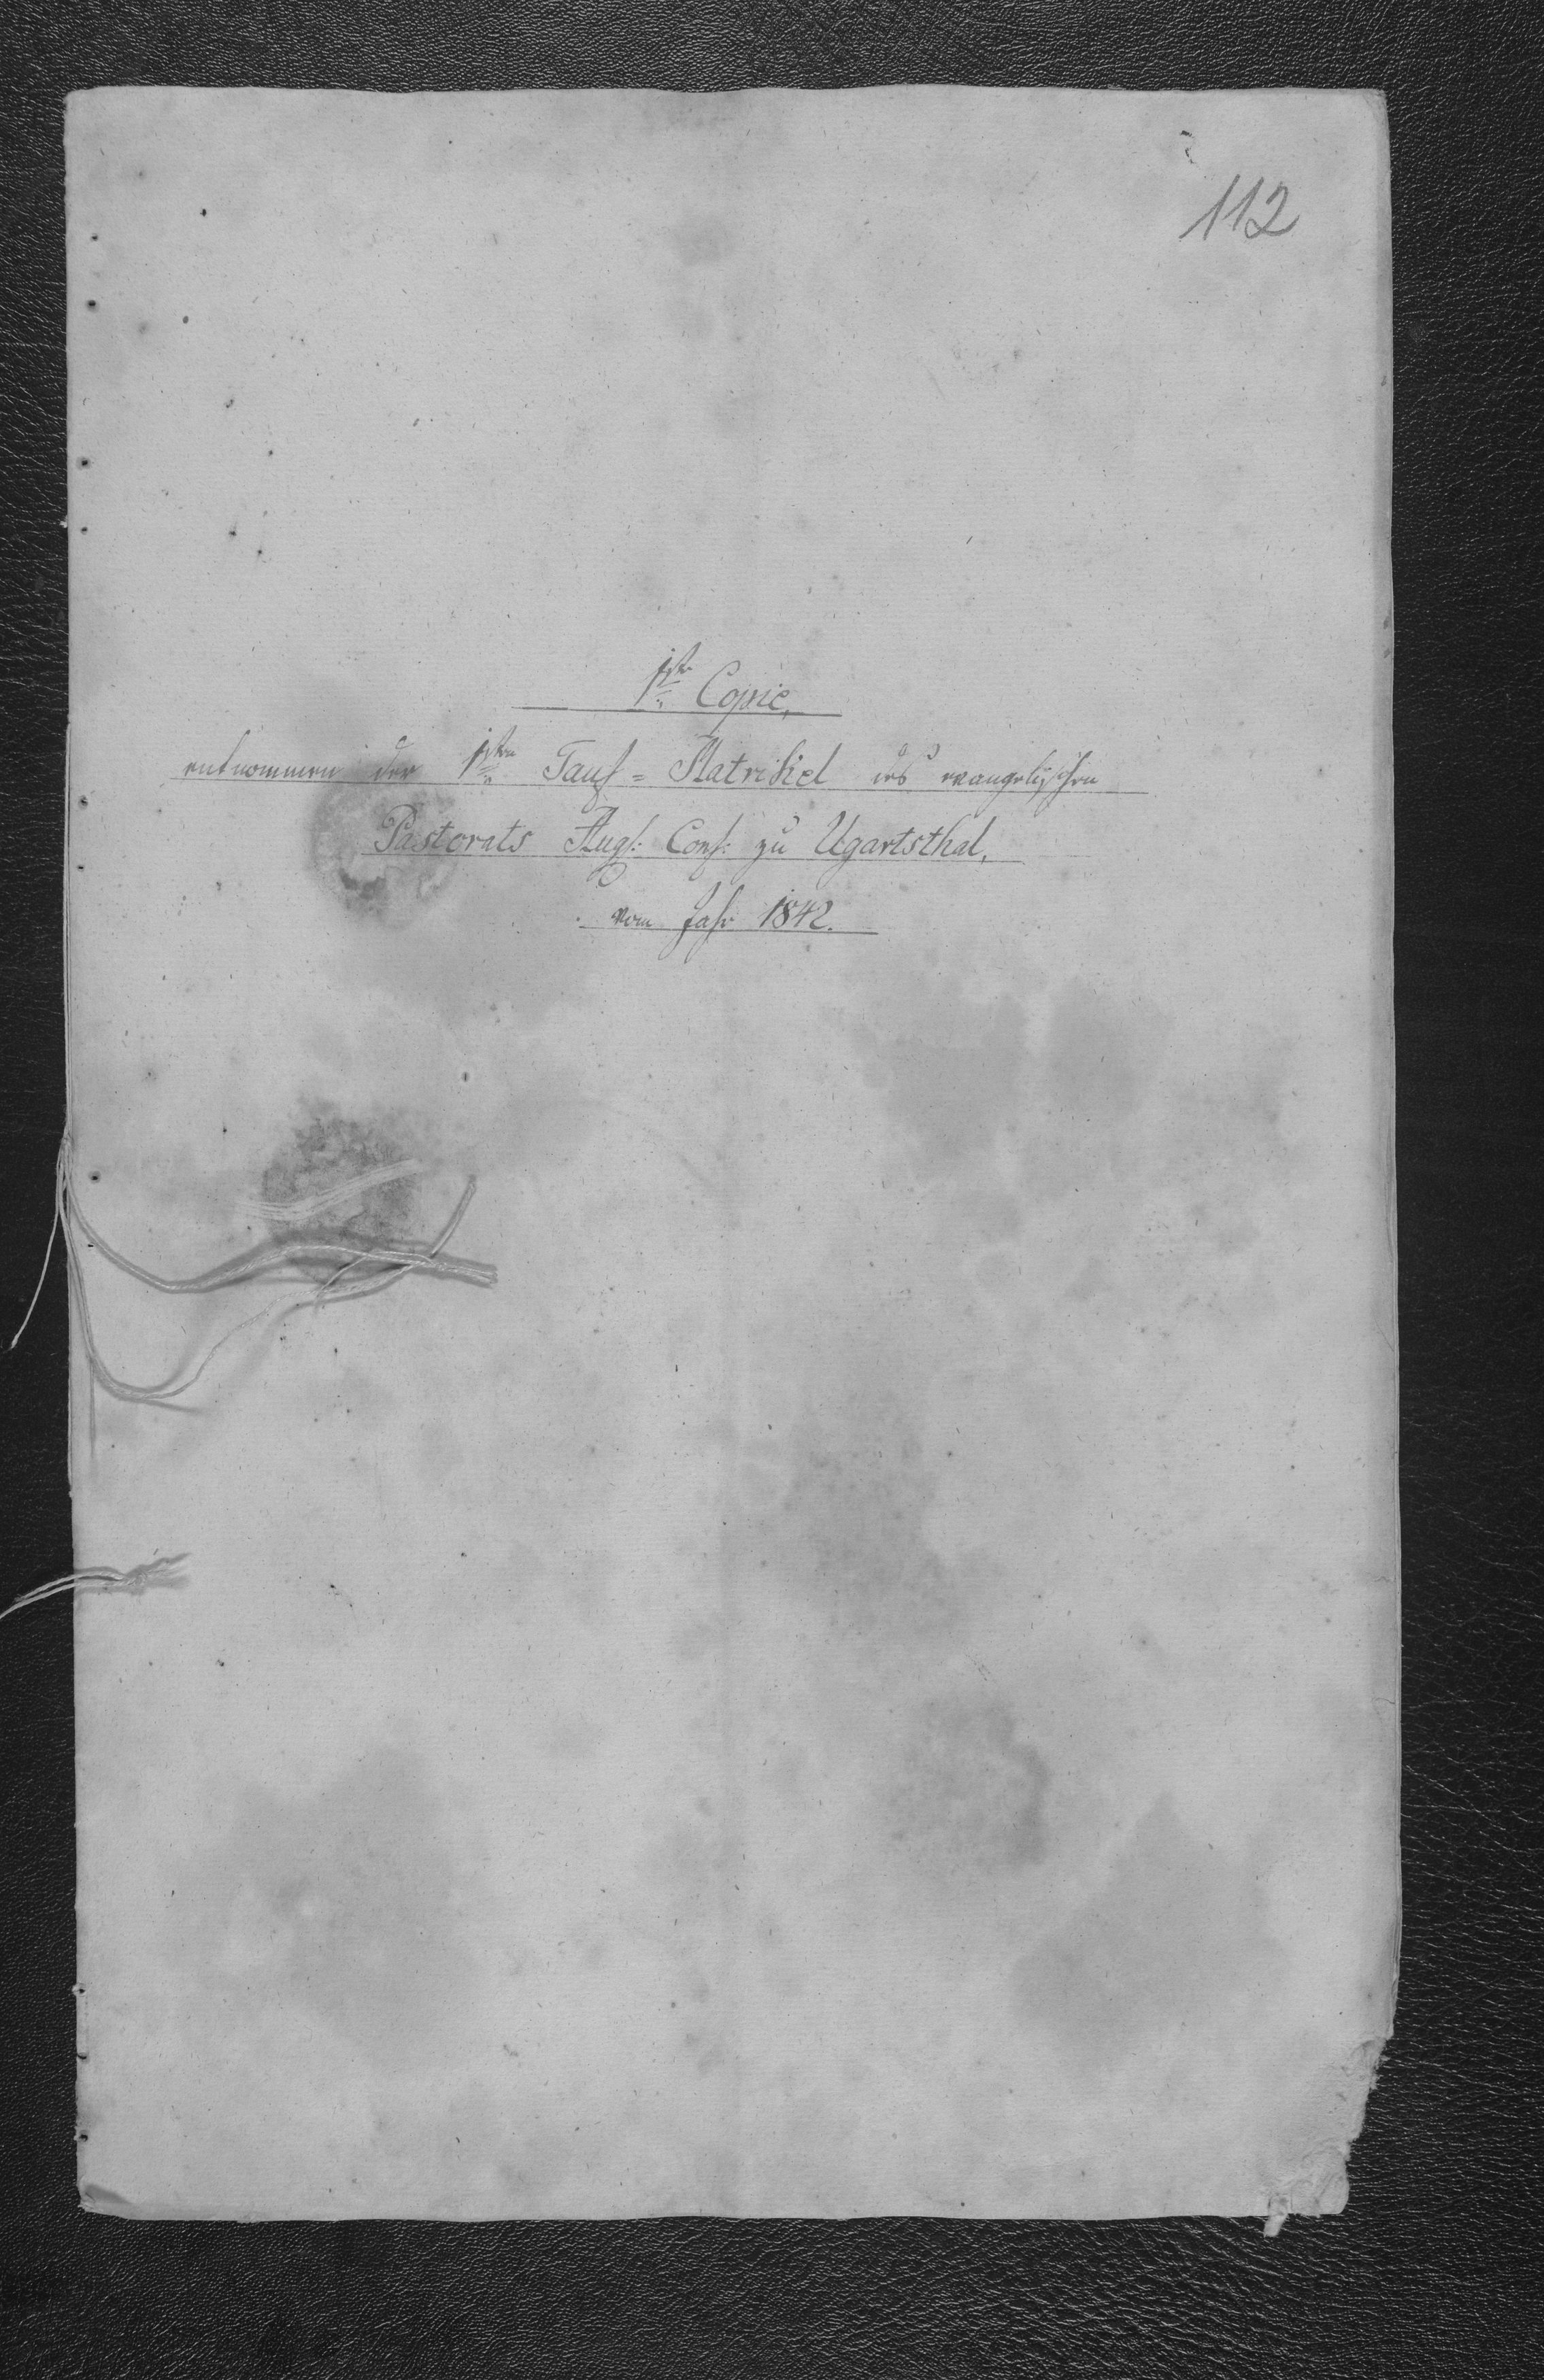 112
1ste Copie,
entnommen der 1sten Tauf= Matrikel des evangelischen
Pastorats Augs: Conf: zu Ugartsthal,
vom Jahr 1842.